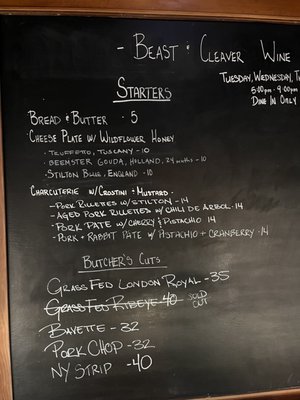 - Beast & Cleaver Wine
Tuesday, Wednesday, T
5:00pm - 9:00pm
Dine In Only
Starters
Bread & Butter · 5
Cheese Plate w/ Wildflower Honey
· Truffetto, Tuscany - 10
· Beemster Gouda, Holland, 24 months - 10
· Stilton Blue, England - 10
Charcuterie w/ Crostini & Mustard ·
- Pork Rillettes w/ Stilton - 14
- Aged Pork Rillettes w/ Chili de Arbol · 14
- Pork Pate w/ Cherry & Pistachio 14
- Pork + Rabbit Pate w/ Pistachio + Cranberry · 14
Butcher's Cuts
Grass Fed London Royal - 35
Grass Fed Ribeye - 40 Sold Out
Bavette - 32
Pork Chop - 32
NY Strip - 40